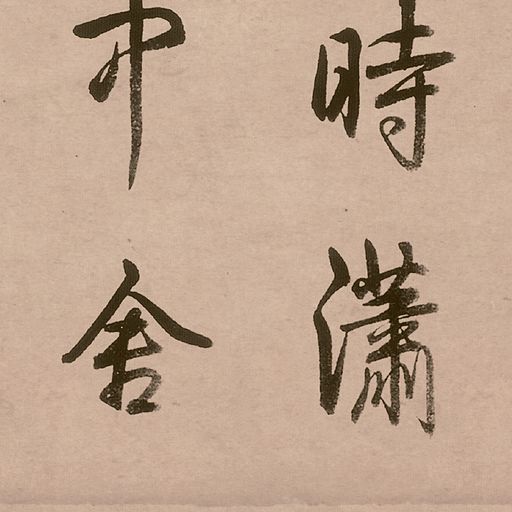 時瀟
中舍